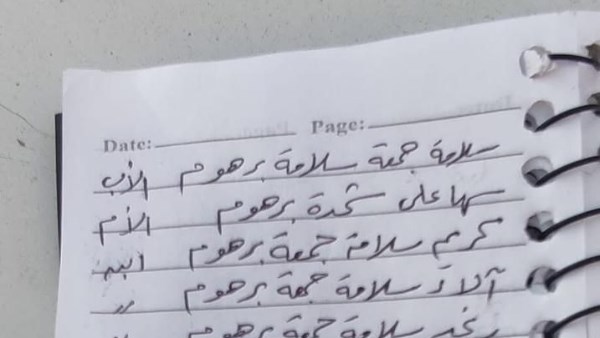 Date: Page:
سلامة جمعة سلامة برهوم الأب
سها علي شحدة برهوم الأم
كريم سلامة جمعة برهوم ابنه
آلاء سلامة جمعة برهوم "
رغد سلامة جمعة برهوم